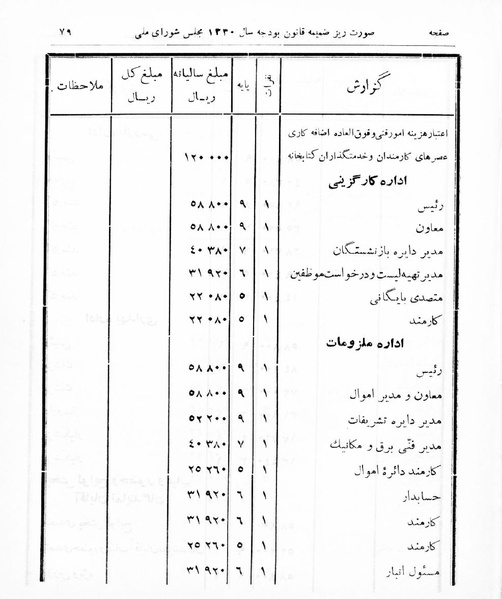 صفحه صورت ریز ضمیمه قانون بودجه سال ۱۳۳۰ مجلس شورای ملی ۷۹
گزارش نفرات پایه مبلغ سالیانه ریال مبلغ کل ریال ملاحظات
اعتبار هزینه امور فنی و فوق العاده اضافه کاری
عصرهای کارمندان و خدمتگذاران کتابخانه ۱۲۰ ۰۰۰
اداره کارگزینی
رئیس ۱ ۹ ۵۸ ۸۰۰
معاون ۱ ۹ ۵۸ ۸۰۰
مدیر دایره بازنشستگان ۱ ۷ ۴۰ ۳۸۰
مدیر تهیه لیست و درخواست موظفین ۱ ۶ ۳۱ ۹۲۰
متصدی بایگانی ۱ ۵ ۲۲ ۰۸۰
کارمند ۱ ۵ ۲۲ ۰۸۰
اداره ملزومات
رئیس ۱ ۹ ۵۸ ۸۰۰
معاون و مدیر اموال ۱ ۹ ۵۸ ۸۰۰
مدیر دایره تشریفات ۱ ۹ ۵۲ ۲۰۰
مدیر فنی برق و مکانیک ۱ ۷ ۴۰ ۳۸۰
کارمند دائرة اموال ۱ ۵ ۲۵ ۲۶۰
حسابدار ۱ ۶ ۳۱ ۹۲۰
کارمند ۱ ۶ ۳۱ ۹۲۰
کارمند ۱ ۵ ۲۵ ۲۶۰
مسئول انبار ۱ ۶ ۳۱ ۹۲۰